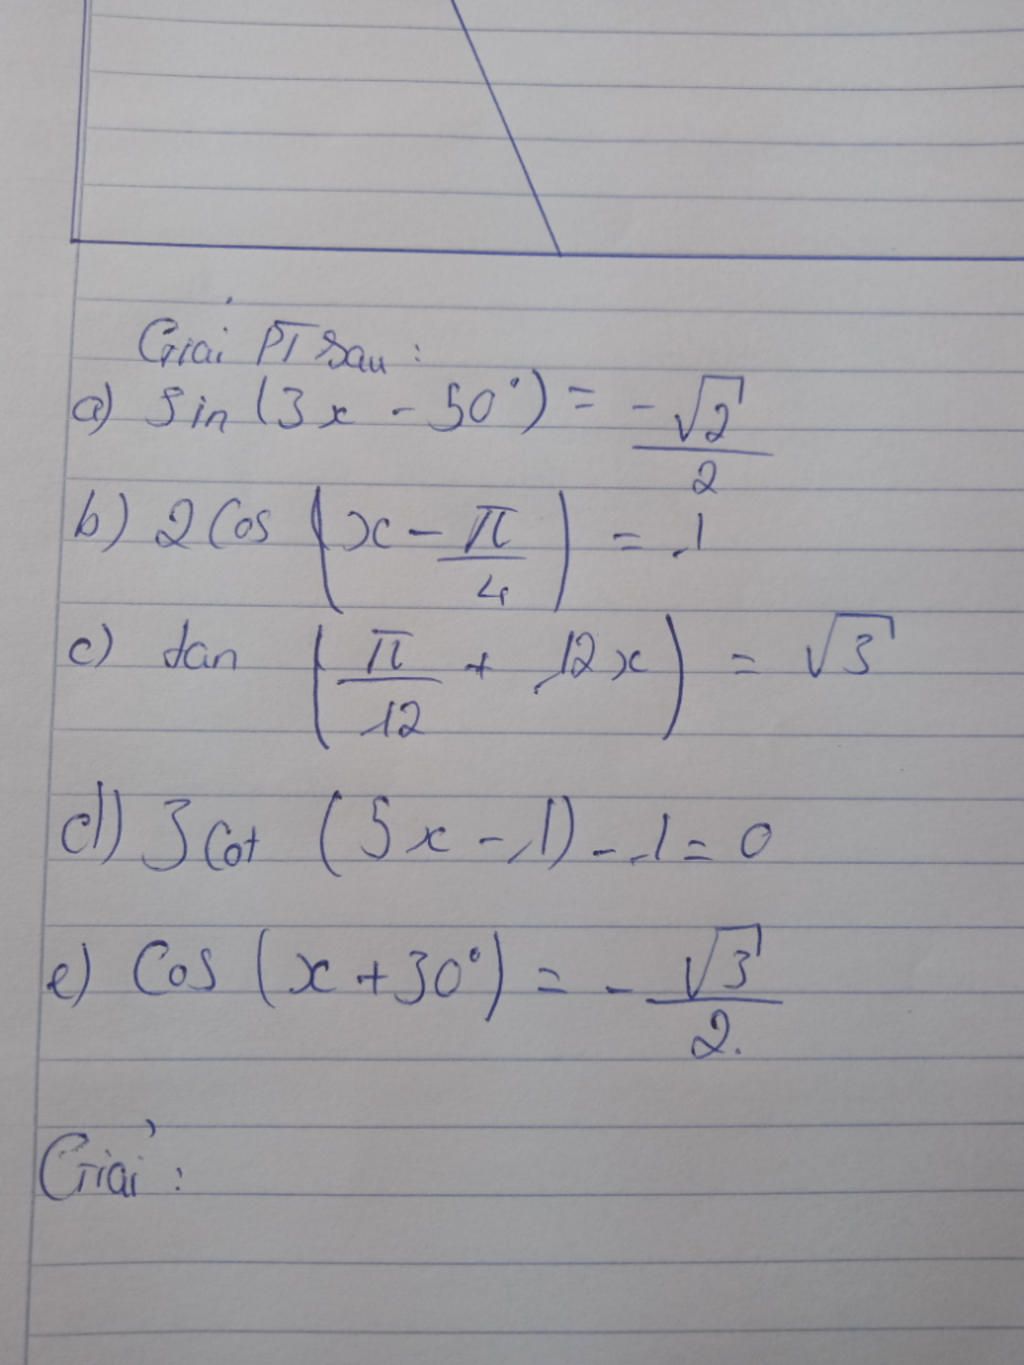 Giải PT sau :
a) sin (3x - 50°) = -√2/2
b) 2 cos (x - π/4) = 1
c) tan (π/12 + 12x) = √3
d) 3 cot (5x - 1) - 1 = 0
e) cos (x + 30°) = - √3/2.
Giải :